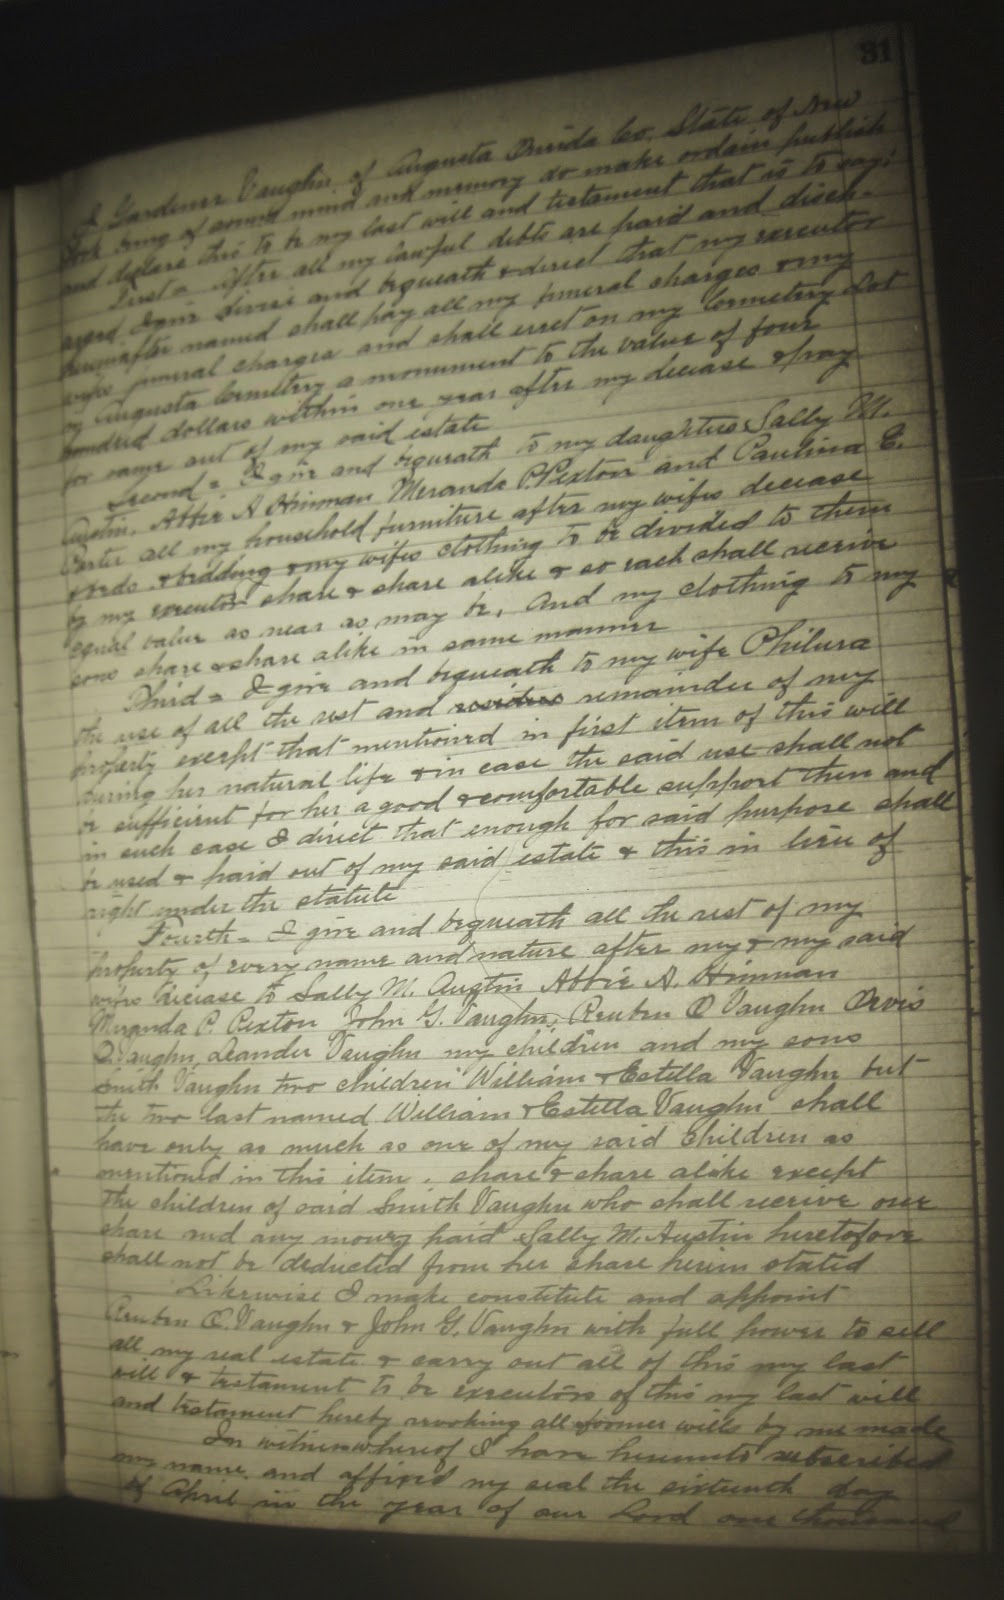 81
I Gardener Vaughn of Augusta Oneida Co. State of New
York being of sound mind and memory do make ordain publish
and declare this to be my last will and testament that is to say:
First = After all my lawful debts are paid and disch-
arged I give devise and bequeath & direct that my executor
hereinafter named shall pay all my funeral charges & my
wifes funeral charges and shall erect on my Cemetery Lot
in Augusta Cemetery a monument to the value of four
hundred dollars within one year after my decease & pay
for same out of my said estate
Second = I give and bequeath to my daughters Sally M.
Austin, Abbie A Hinman Meranda P. Pexton and Paulina E.
Carter all my household furniture after my wifes decease
& beds & bedding & my wifes clothing to be divided to them
by my executor share & share alike & so each shall receive
equal value as near as may be, And my clothing to my
sons share & share alike in same manner
Third = I give and bequeath to my wife Philura
the use of all the rest and remainder of my
property except that mentioned in first item of this will
during her natural life & in case the said use shall not
be sufficient for her a good & comfortable support then and
in such case I direct that enough for said purpose shall
be used & paid out of my said estate & this in lieu of
right under the statute
Fourth = I give and bequeath all the rest of my
property of every name and nature after my & my said
wifes decease to Sally M. Austin Abbie A. Hinman
Meranda P. Pexton John G. Vaughn, Reuben O Vaughn Orvis
O. Vaughn, Leander Vaughn my children and my sons
Smith Vaughn two children William & Estella Vaughn but
the two last named William & Estella Vaughn shall
have only as much as one of my said children as
mentioned in this item, share & share alike except
the children of said Smith Vaughn who shall receive one
share and any money paid Sally M. Austin heretofore
shall not be deducted from her share herein stated
Likewise I make constitute and appoint
Reuben O. Vaughn & John G. Vaughn with full power to sell
all my real estate & carry out all of this my last
will & testament to be executors of this my last will
and testament hereby revoking all former wills by me made
In witness whereof I have hereunto subscribed
my name and affixed my seal the sixteenth day
of April in the year of our Lord one thousand